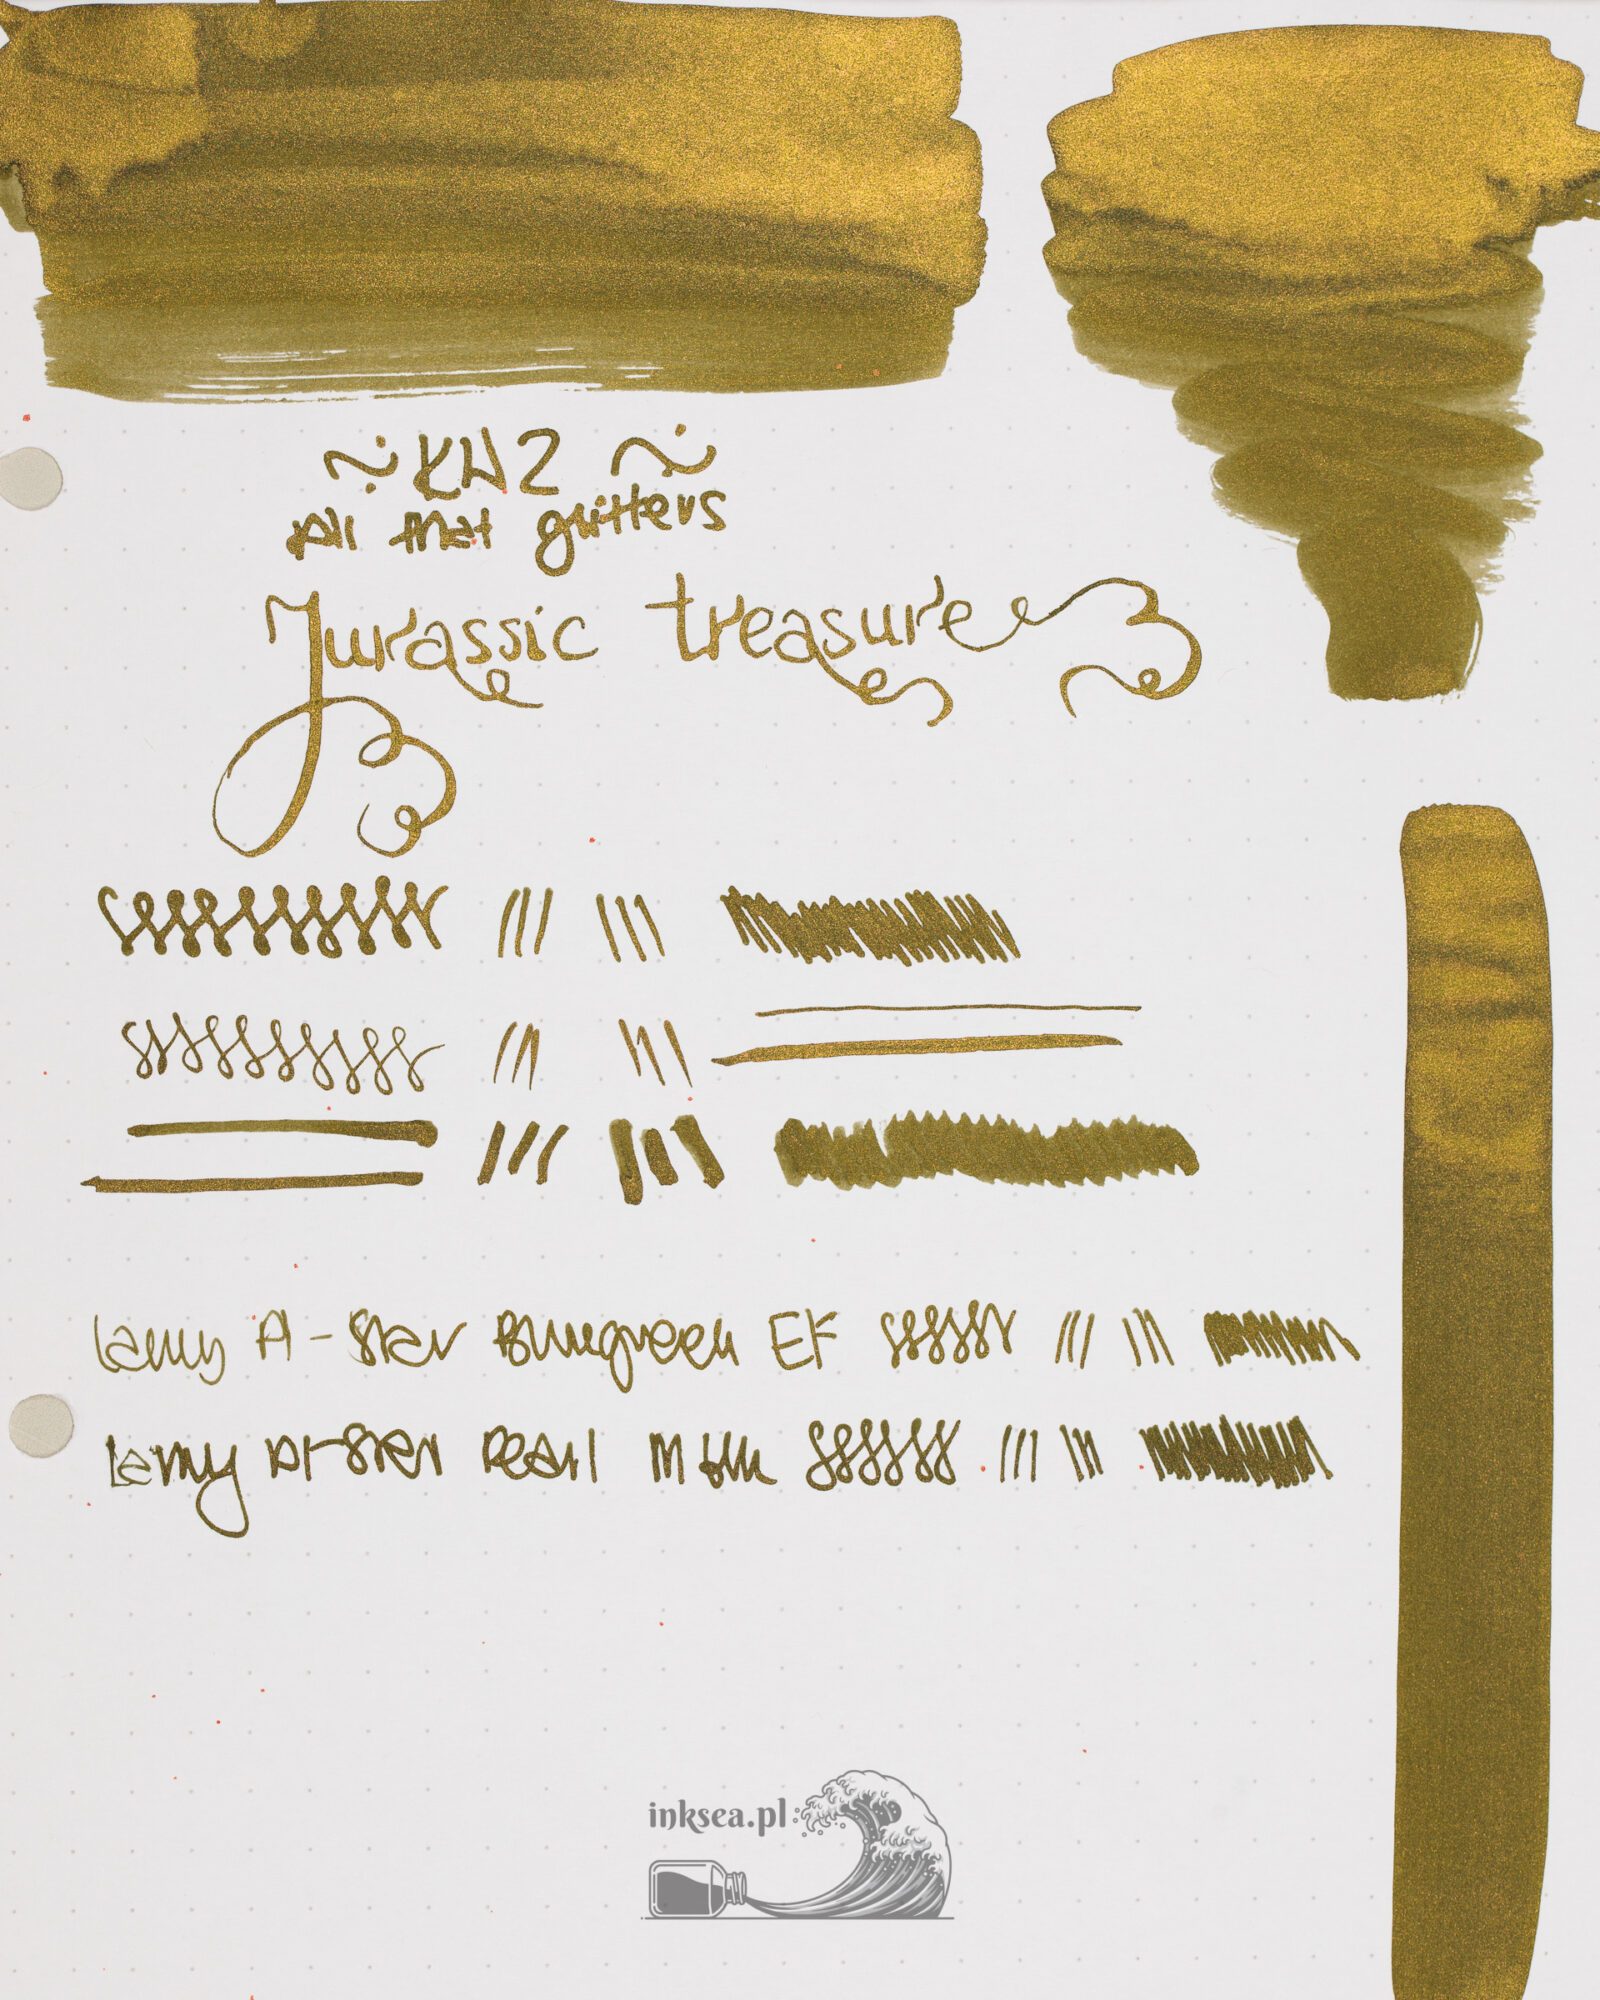 ~ KWZ ~
All that glitters
Jurassic treasure
Lamy Al-Star Bluegreen EF
Lamy Al-Star Pearl M
inksea.pl